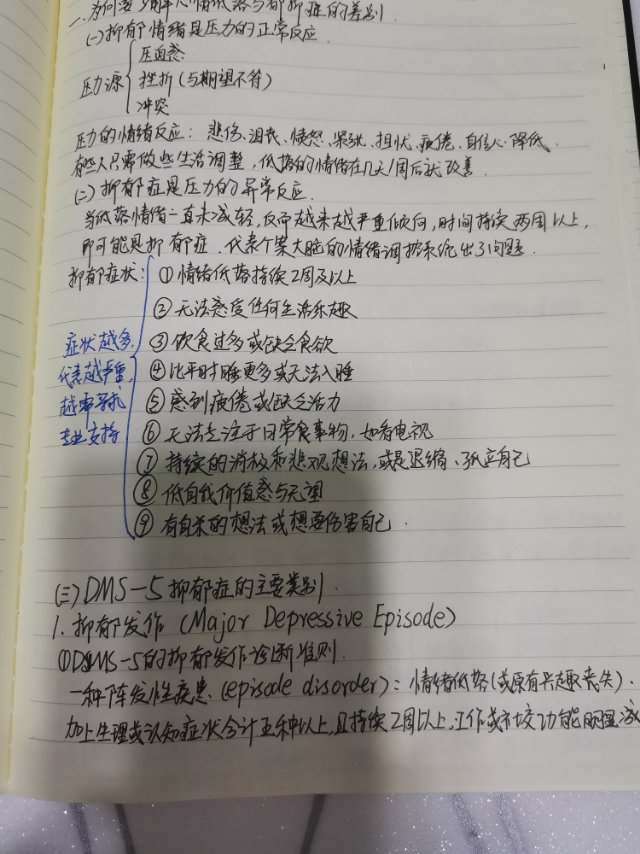 一.为何要 情低落与抑郁症的差别
(一)抑郁情绪是压力的正常反应.
压力源
压迫感
挫折(与期望不符)
冲突
压力的情绪反应: 悲伤、沮丧、愤怒、紧张、担忧、疲倦、自信心降低.
有些人只需做些生活调整,低落的情绪在几天/1周后就改善
(二)抑郁症是压力的异常反应.
当低落情绪一直未减轻,反而越来越严重倾向,时间持续两周以上,
即可能是抑郁症.代表个案大脑的情绪调控系统出了问题.
抑郁症状:
①情绪低落持续2周及以上
②无法感受任何生活乐趣
③饮食过多或缺乏食欲
④比平时睡更多或无法入睡
⑤感到疲倦或缺乏活力
⑥无法专注于日常事物,如看电视
⑦持续的消极和悲观想法,或是退缩、孤立自己
⑧低自我价值感与无望
⑨有自杀的想法或想要伤害自己.
症状越多,
代表越严重,
越需寻求
专业支持
(三)DMS-5抑郁症的主要类别.
1.抑郁发作(Major Depressive Episode)
①DMS-5的抑郁发作诊断准则.
一种阵发性疾患(episode disorder):情绪低落(或原有兴趣丧失).
加上生理或认知症状合计五种以上,且持续2周以上,工作或社交功能明显减